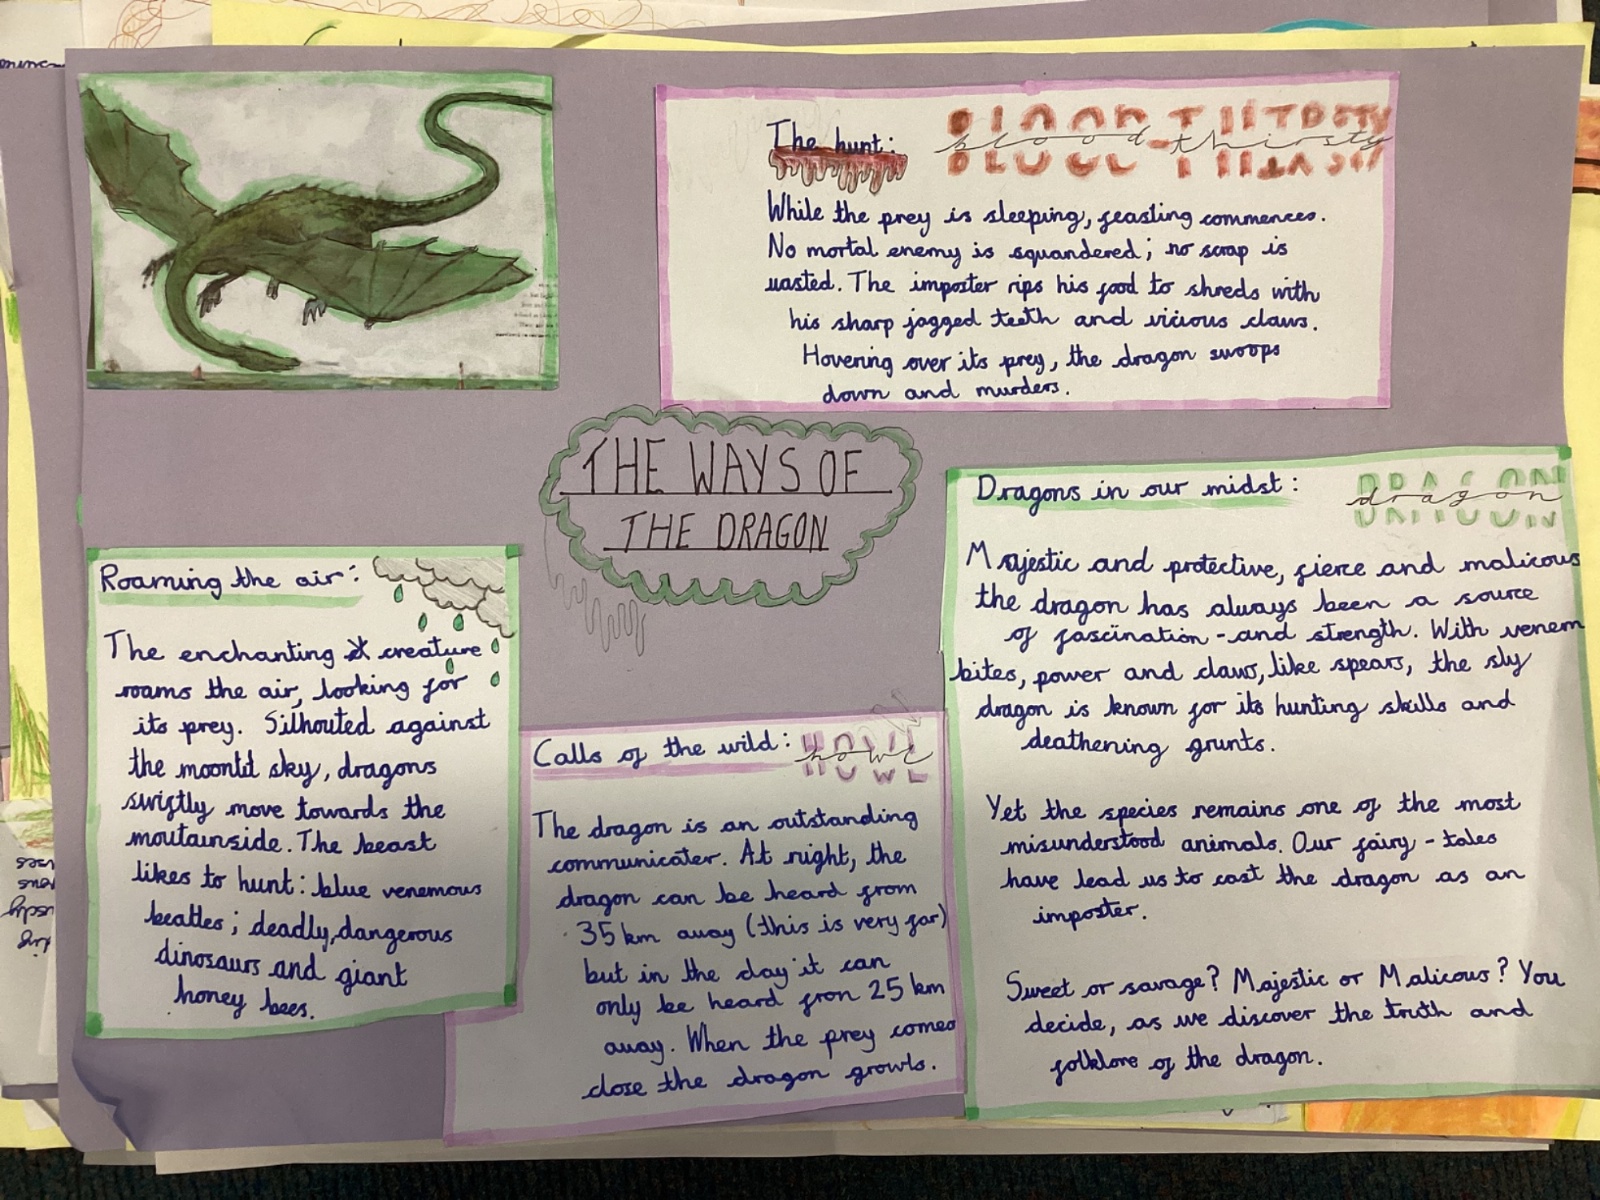 The hunt:
BLOOD-THIRSTY
blood-thirsty
While the prey is sleeping, feasting commences.
No mortal enemy is squandered; no scrap is
wasted. The imposter rips his food to shreds with
his sharp jagged teeth and vicious claws.
Hovering over its prey, the dragon swoops
down and murders.
THE WAYS OF
THE DRAGON
Dragons in our midst:
DRAGON
dragon
Majestic and protective, fierce and malicous
the dragon has always been a source
of fascination - and strength. With venem
bites, power and claws, like spears, the sly
dragon is known for its hunting skills and
deathening grunts.
Yet the species remains one of the most
misunderstood animals. Our fairy - tales
have lead us to cast the dragon as an
imposter.
Sweet or savage? Majestic or Malicous? You
decide, as we discover the truth and
folklore of the dragon.
Roaming the air:
The enchanting creature
roams the air, looking for
its prey. Silhouted against
the moonlit sky, dragons
swiftly move towards the
moutainside. The beast
likes to hunt: blue venemous
beatles; deadly, dangerous
dinosaurs and giant
honey bees.
Calls of the wild:
HOWL
howl
The dragon is an outstanding
communicater. At night, the
dragon can be heard from
35 km away (this is very far)
but in the day it can
only be heard fron 25 km
away. When the prey comes
close the dragon growls.